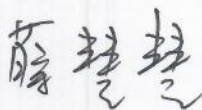 薛慧慧